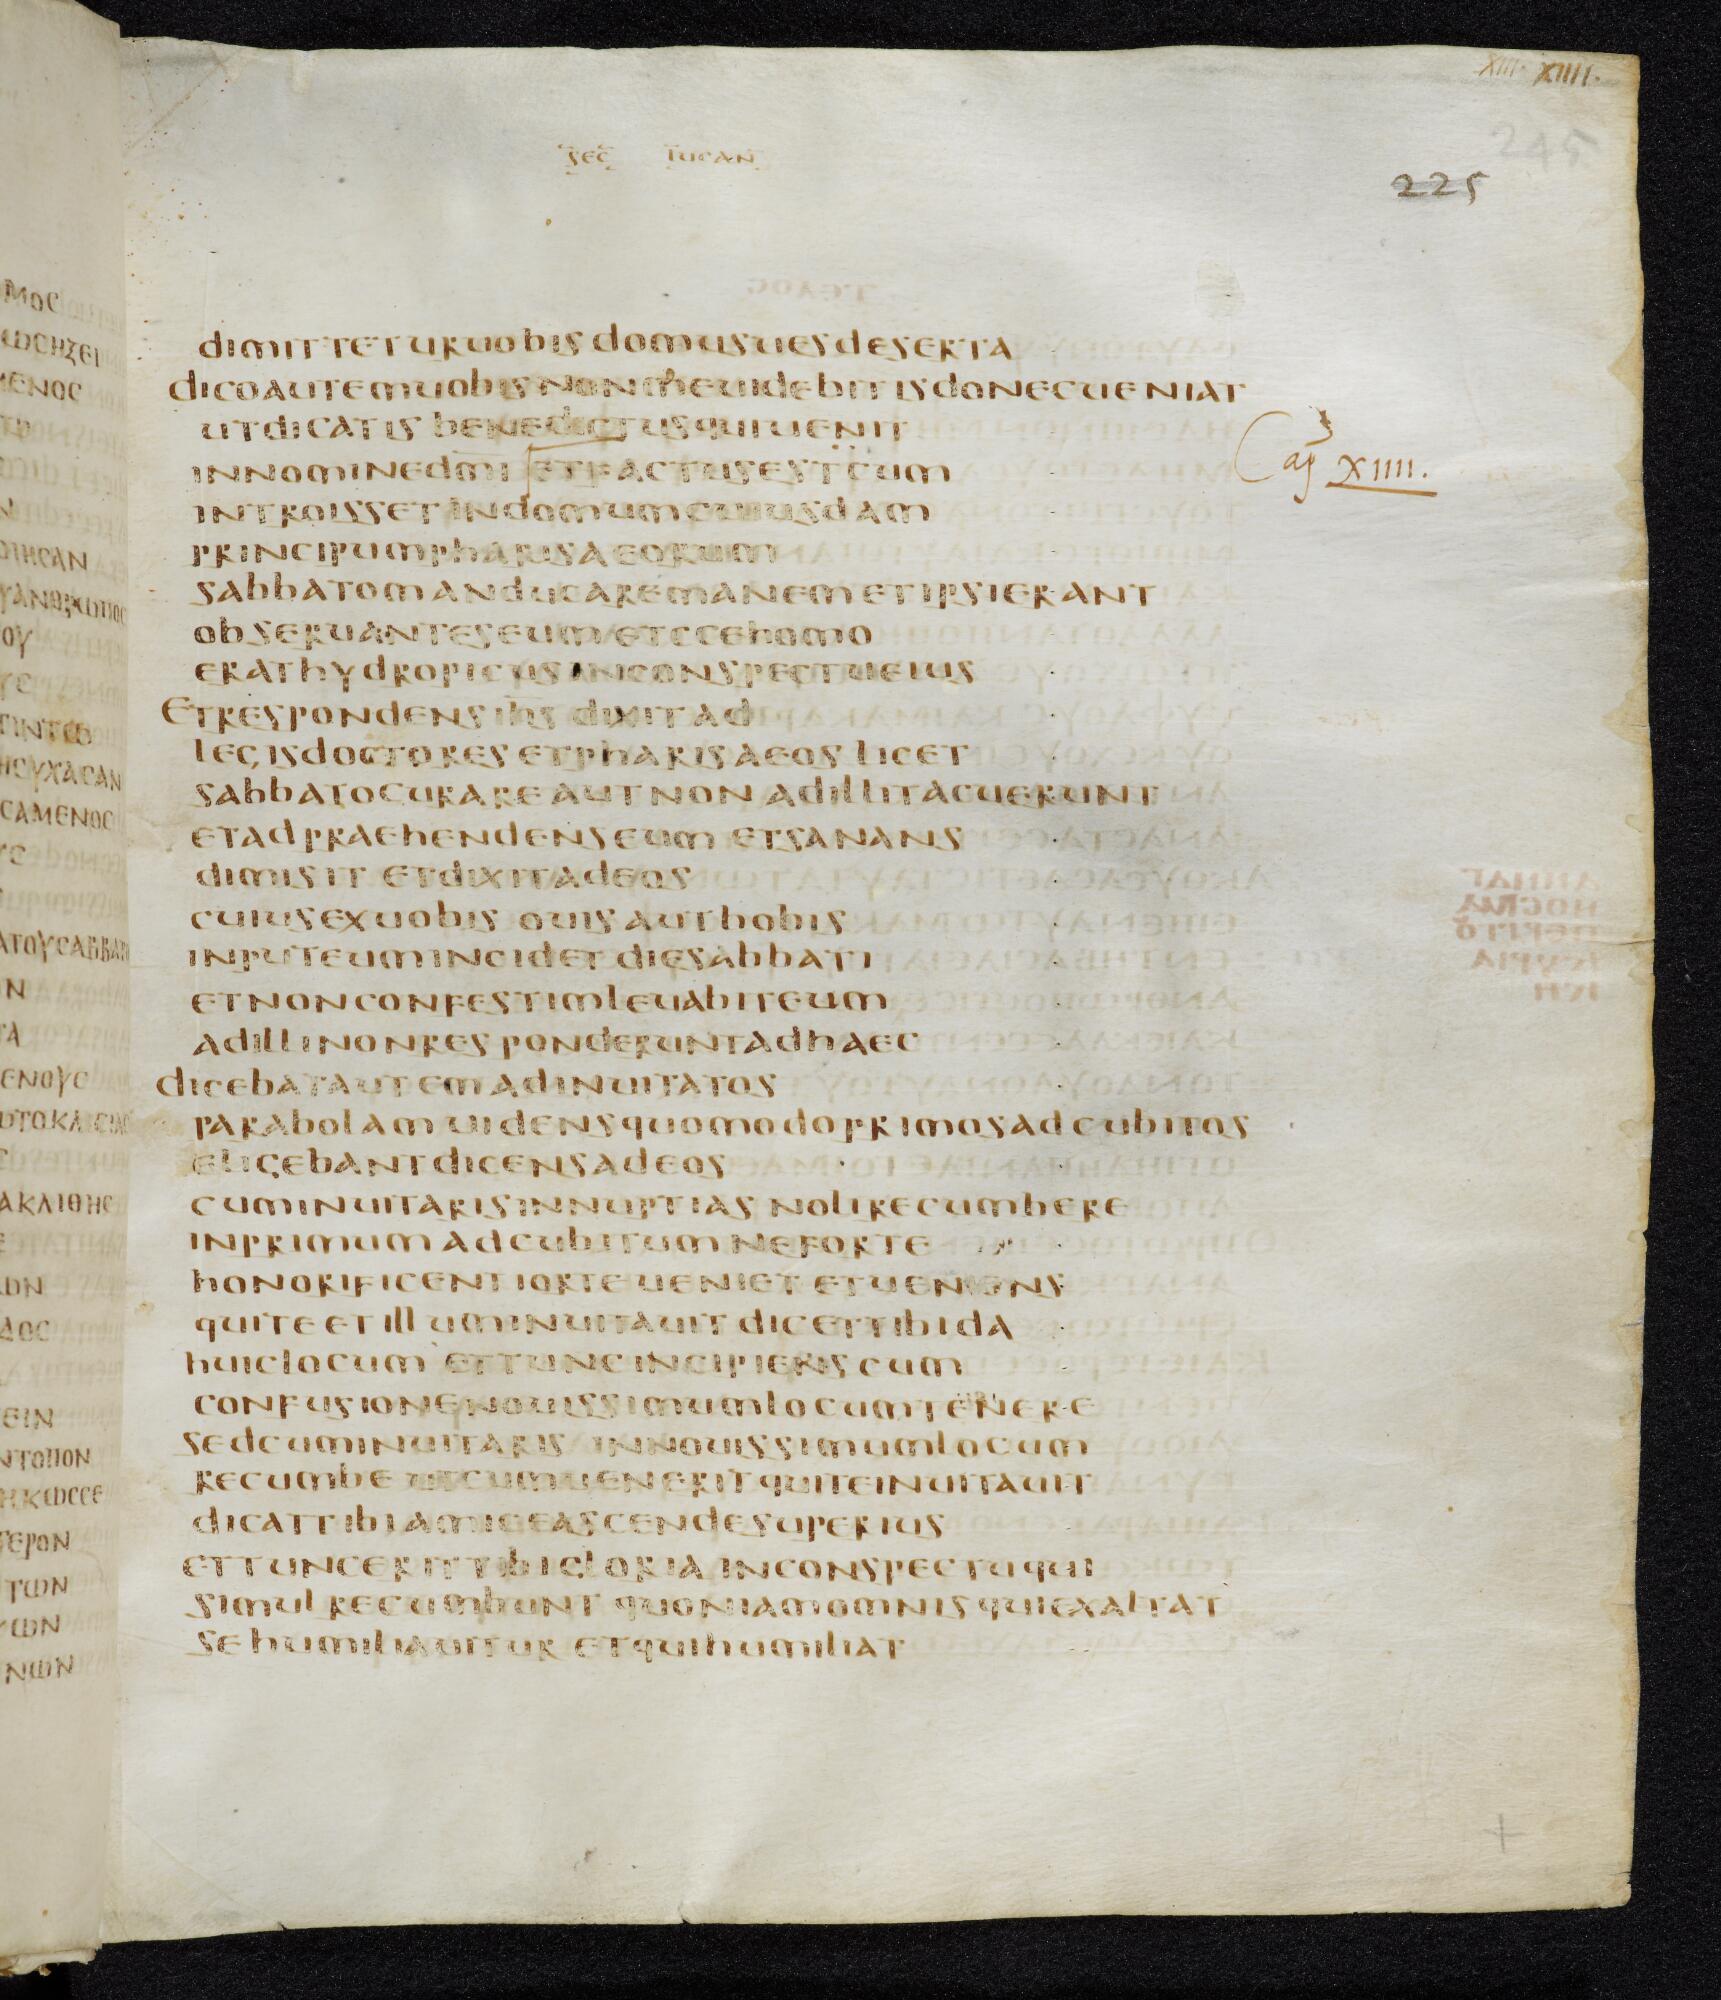 XIII. XIIII.
245
sec lucan
225
dimittetur uobis domus ues deserta
dico autem uobis non me uidebitis donec ueniat
ut dicatis benedictus qui uenit
in nomine dmi et factus est cum
introisset in domum cuiusdam
principum pharisaeorum
sabbato manducare manem et ipsi erant
Cap XIIII.
obseruantes eum et cce homo
erat hydropicus in conspectu eius
Et respondens ihs dixit ad
legis doctores et pharisaeos licet
sabbato curare aut non ad illi tacuerunt
et adpraehendens eum et sanans
dimisit et dixit ad eos
cuius ex uobis ouis aut bobis
in puteum incidet die sabbati
et non confestim leuabit eum
ad illi non responderunt ad haec
dicebat autem ad inuitatos
parabolam uidens quomodo primos adcubitos
eligebant dicens ad eos
cum inuitaris in nuptias noli recumbere
in primum adcubitum ne forte
honorificentior te ueniet et ueniens
qui te et illum inuitauit dicet tibi da
huic locum et tunc incipiens cum
confusione nouissimum locum tenere
sed cum inuitaris in nouissimum locum
recumbe ut cum uenerit qui te inuitauit
dicat tibi amice ascende superius
et tunc erit tibi gloria in conspectu qui
simul recumbunt quoniam omnis qui exaltat
se humiliauitur et qui humiliat